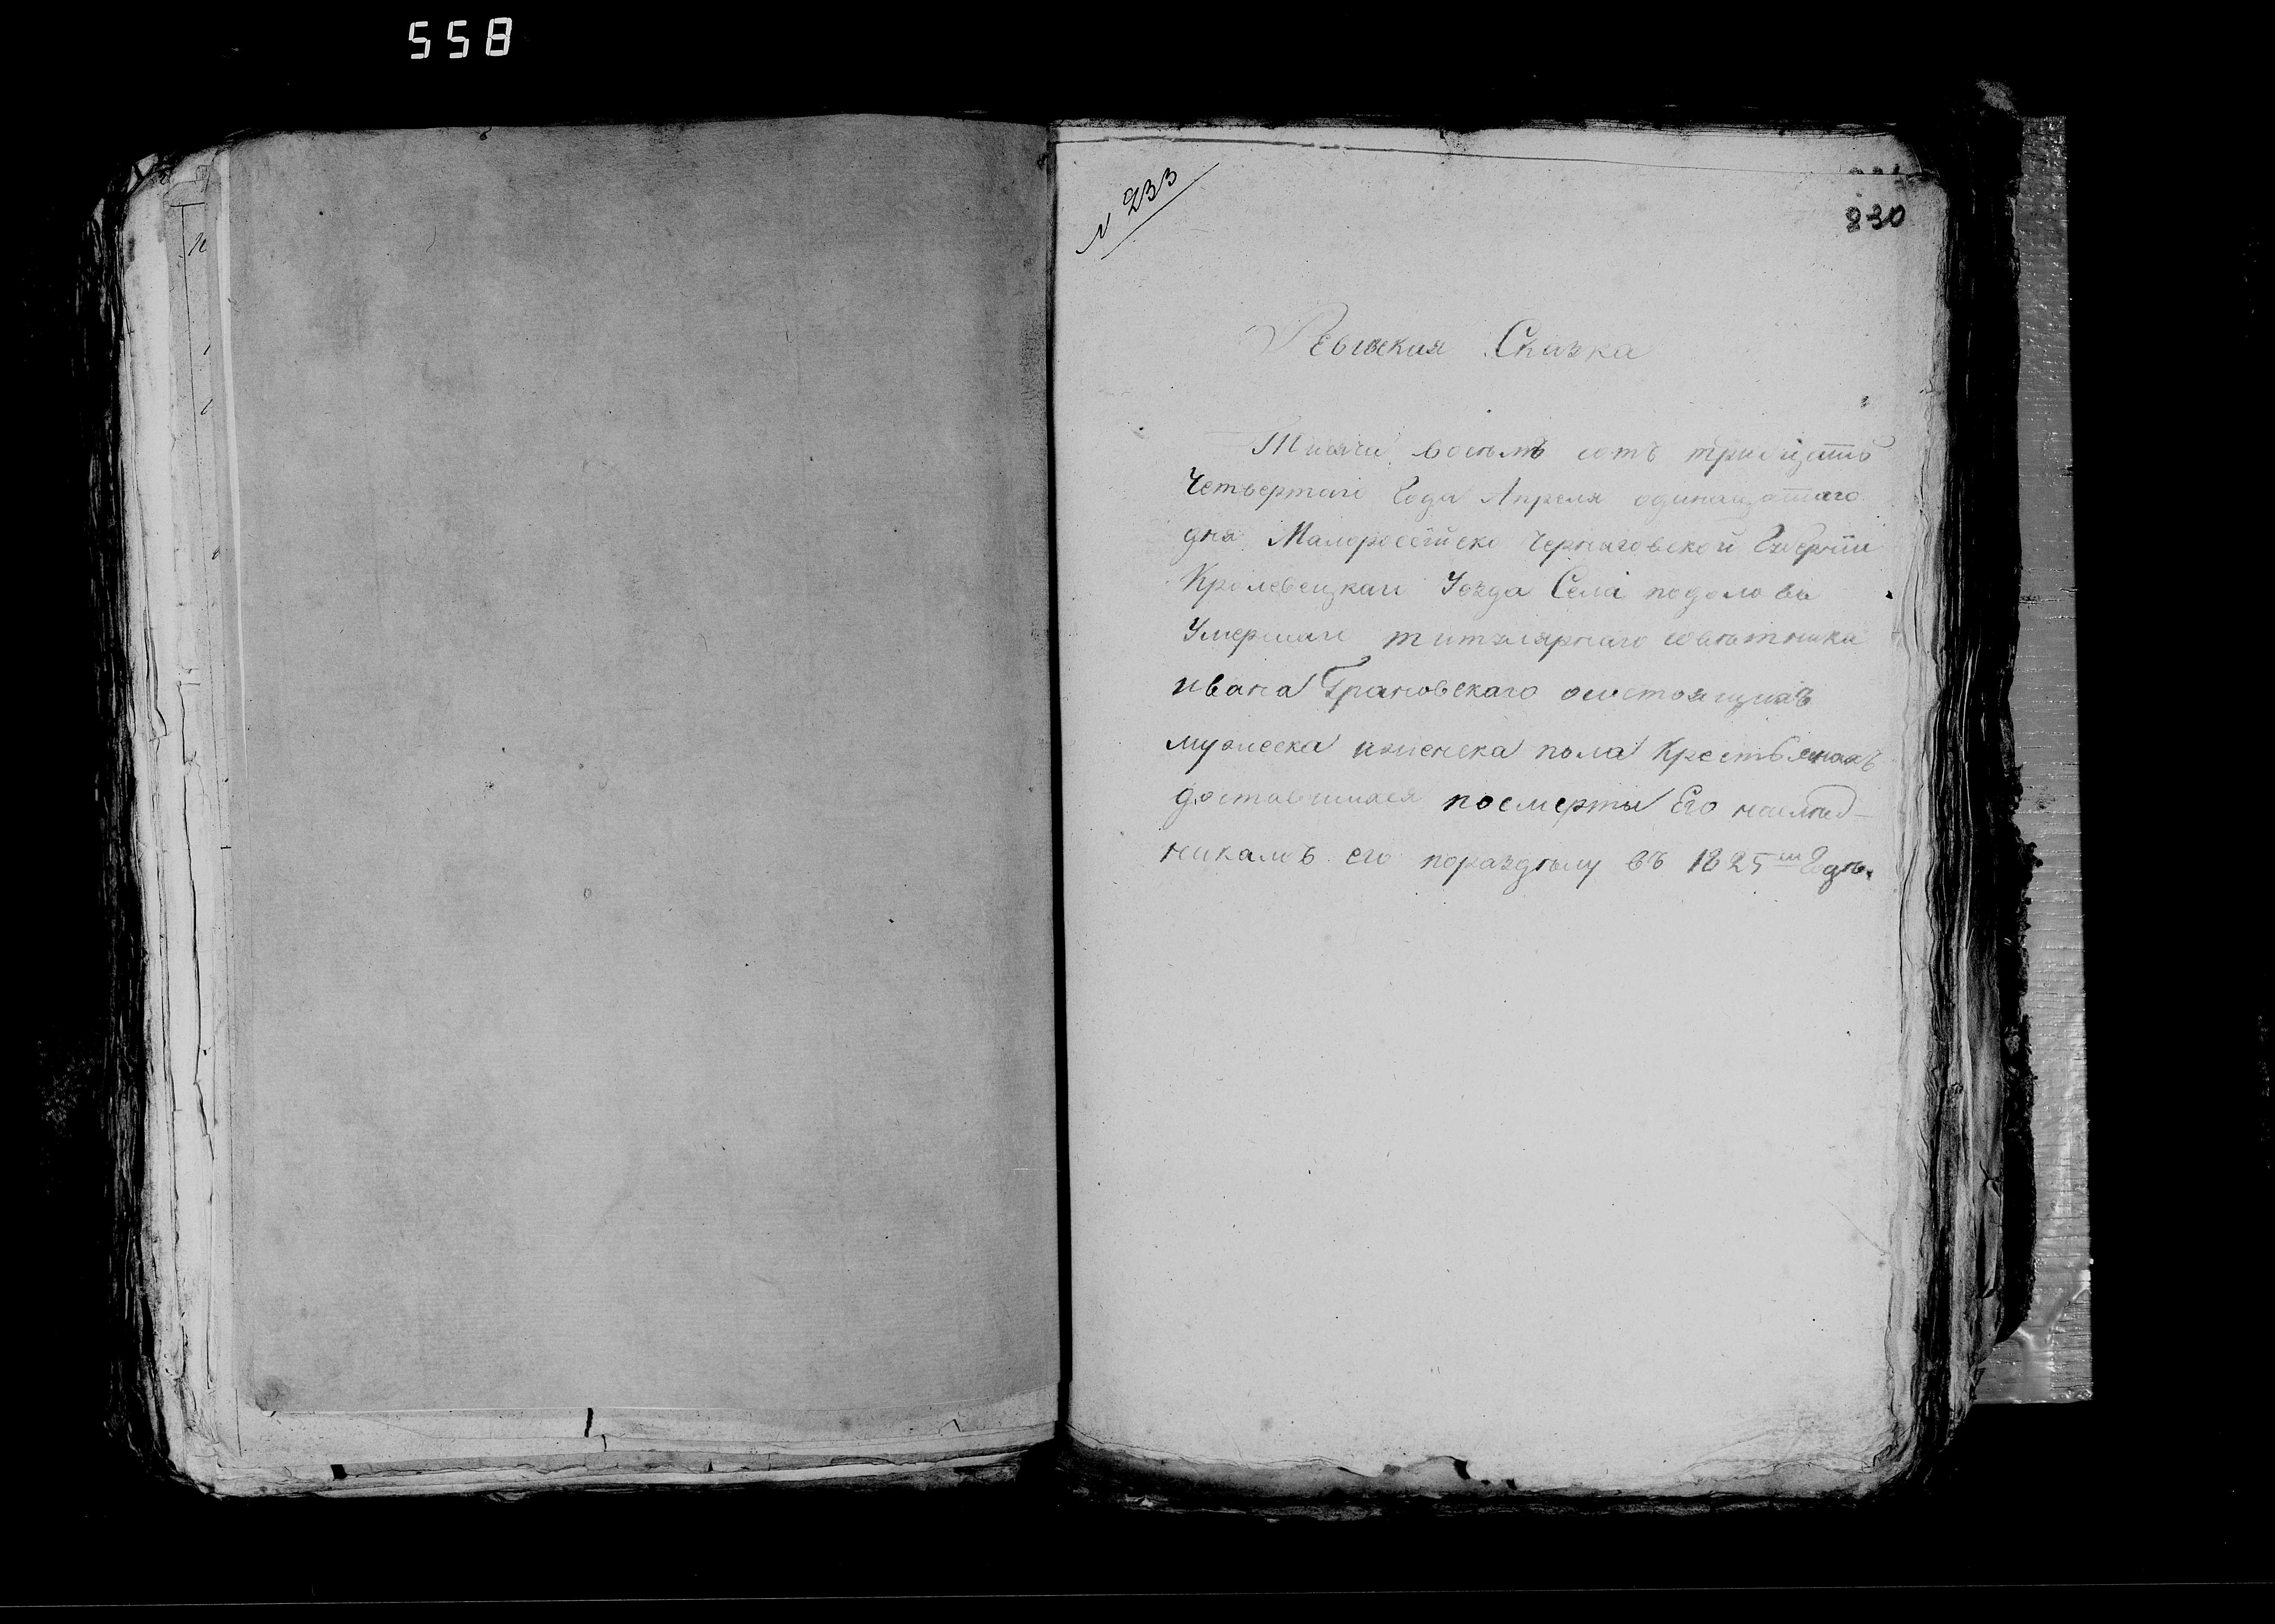 558
N 233
230
Ревизкая Сказка
Тисячи восемь сотъ тридцать
Четвертаго Года Апреля одинацатаго
дня Малоросейско Черниговской Губернии
Кролевецкаго Уезда Села подоловъ
Умершаго титулярнаго советника
ивана Грановскаго осостоящихъ
мужеска иженска пола Крестьянахъ
доставшихся посмерты Его наслед-
никамъ его поразделу въ 1825 м Годѣ.